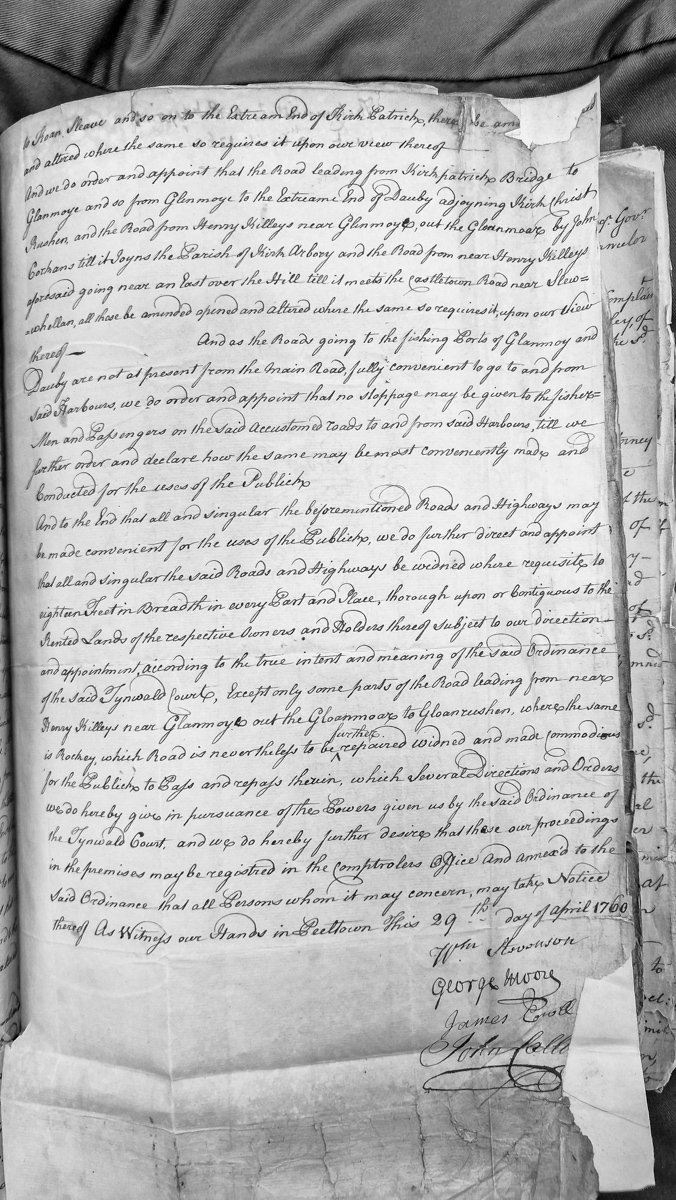 to Roan Sleave and so on to the Extream End of Kirk Patrick, there be
and altred where the same so requires it upon our view thereof
And we do order and appoint that the Road leading from Kirkpatrick Bridge to
Glenmoye and so from Glenmoye to the Extreame End of Dauby adjoyning Kirk Christ
Rushen, and the Road from Henry Killeys near Glenmoye, out the Gloanmoar by John
Corkans till it Joyns the Parish of Kirk Arbory and the Road from near Henry Killeys
aforesaid going near an East over the Hill till it meets the Castletown Road near Slew=
=whellan, all these be amended opened and altered where the same so requires it, upon our View
thereof — And as the Roads going to the fishing Ports of Glanmoy and
Dauby are not at present from the Main Road, fully convenient to go to and from
said Harbours, we do order and appoint that no stoppage may be given to the fisher=
Men and Passengers on the said Accustomed roads to and from said Harbours, till we
further order and declare how the same may be most conveniently made and
Conducted for the uses of the Publick
And to the End that all and singular the beforementioned Roads and Highways may
be made convenient for the uses of the Publick, we do further direct and appoint
that all and singular the said Roads and Highways be widned where requisite to
eighteen Feet in Breadth in every Part and Place, thorough upon or Contiguous to the
Rented Lands of the respective Owners and Holders thereof subject to our direction
and appointment, according to the true intent and meaning of the said Ordinance
of the said Tynwald Court, Except only some parts of the Road leading from near
Henry Killeys near Glanmoye out the Gloanmoar to Gloanrushen, where the same
is Rockey, which Road is nevertheless to be further repaired widned and made Commodious
for the Publick to Pass and repass therein, which Several Directions and Orders
we do hereby give in pursuance of the Powers given us by the said Ordinance of
the Tynwald Court, and we do hereby further desire that these our proceedings
in the premises may be registred in the Comptrolers Office and Annex'd to the
said Ordinance that all Persons whom it may concern, may take Notice
thereof As Witness our Hands in Peeltown This 29th day of April 1760
Wm Stevenson
George Moore
James
John